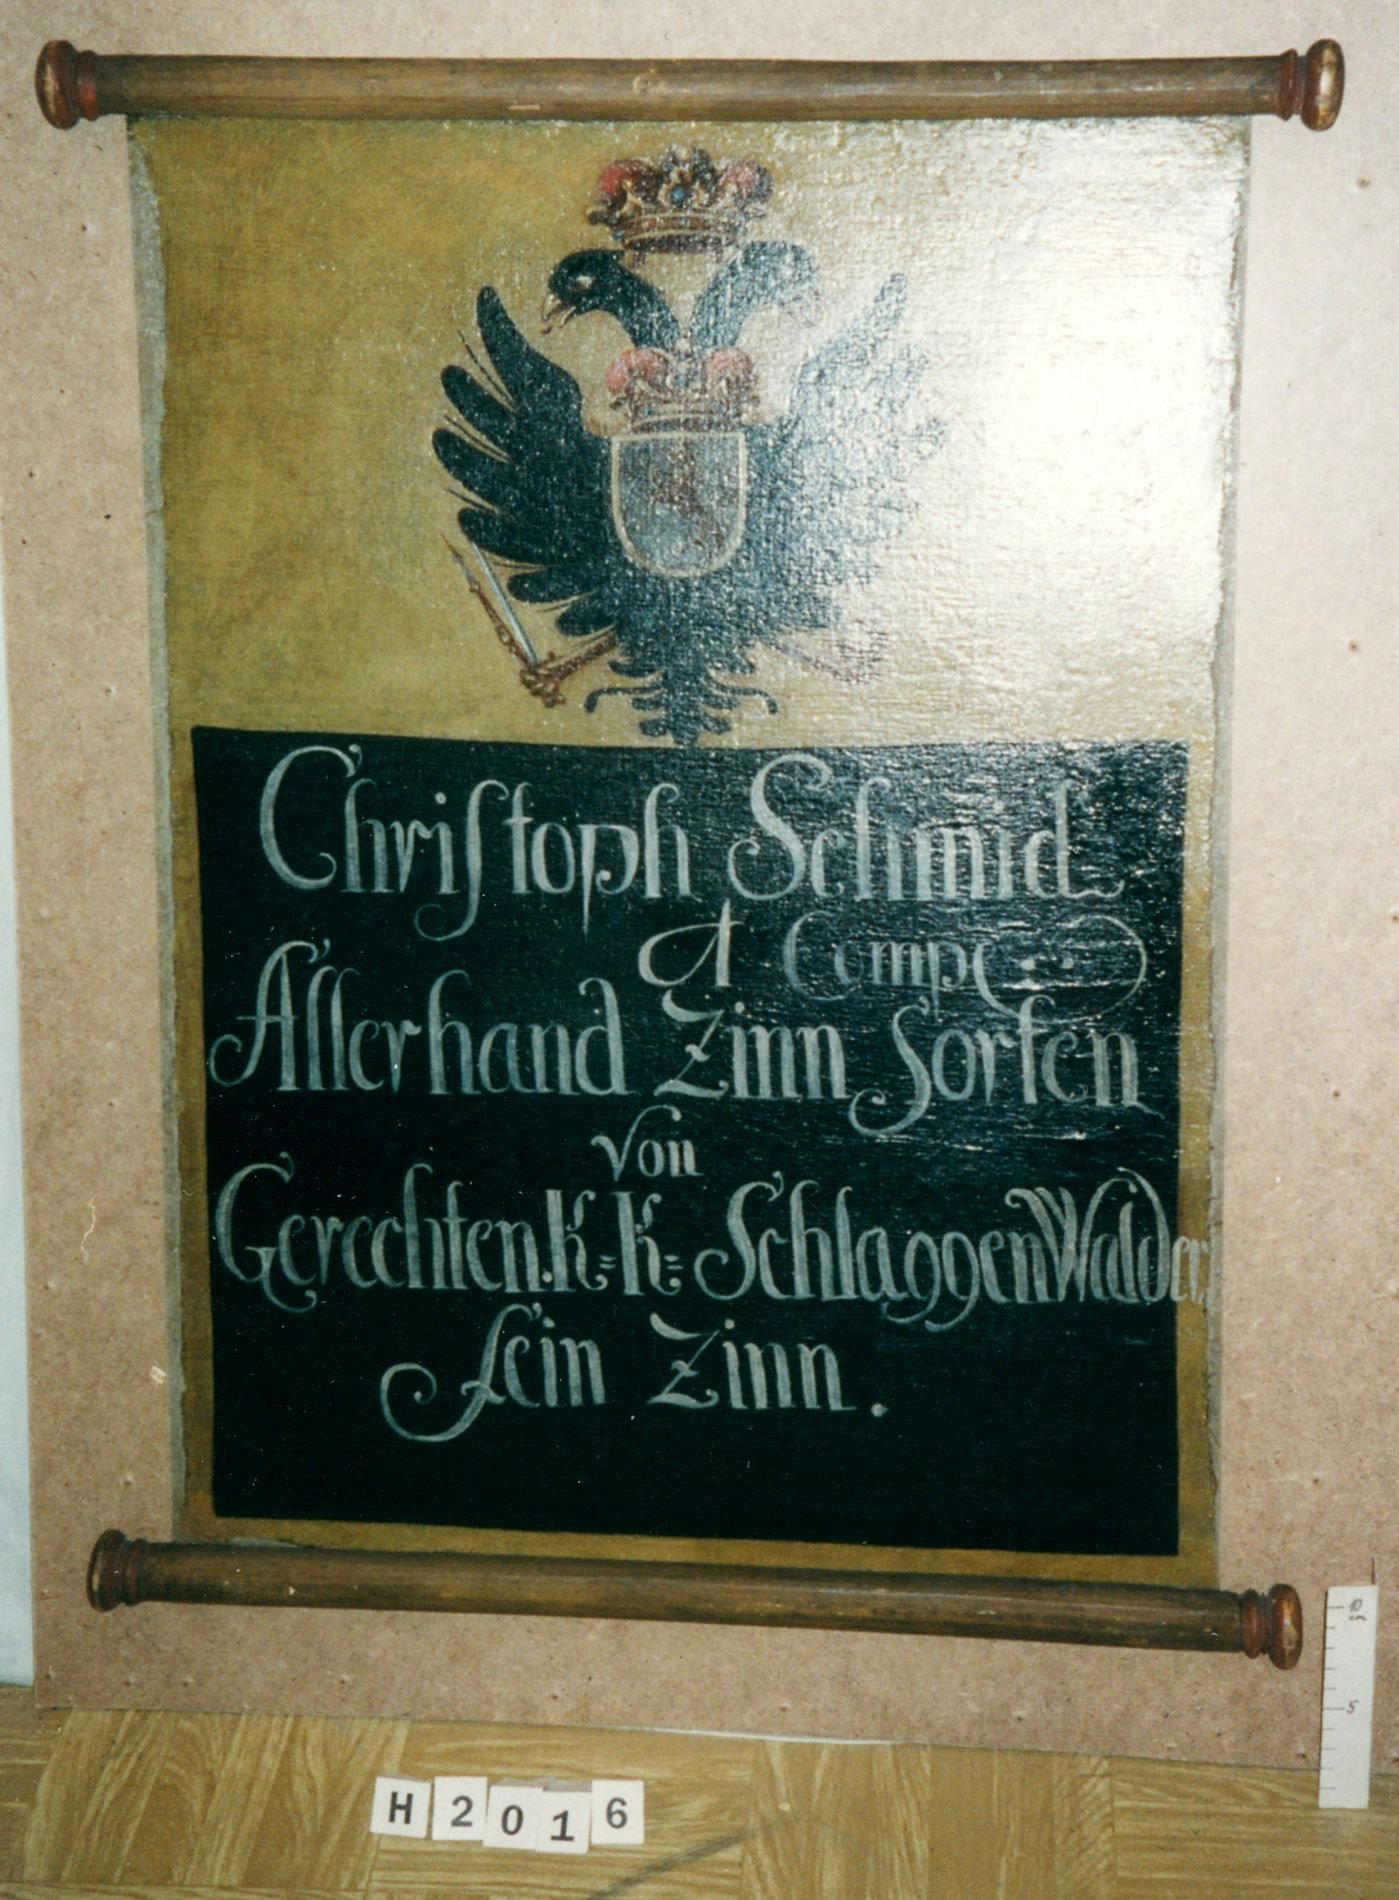 Chriſtoph Schmid
et Comp
Allerhand Zinn ſorten
von
Gerechten. K=K= SchlaggenWalder
fein Zinn.
10
cm
5
H2016